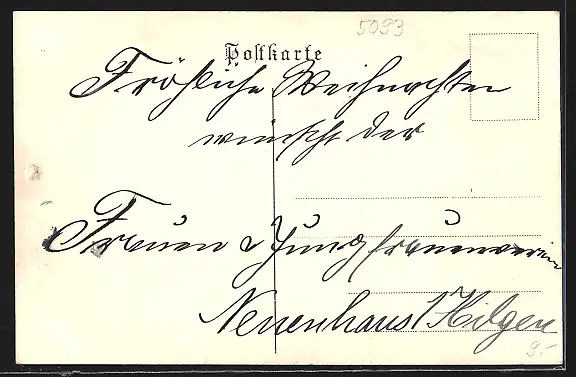 5093
Postkarte
Fröhliche Weihnachten
wünscht der
Frauen & Jungfrauenverein
Neuenhaus/Hilgen
9.-